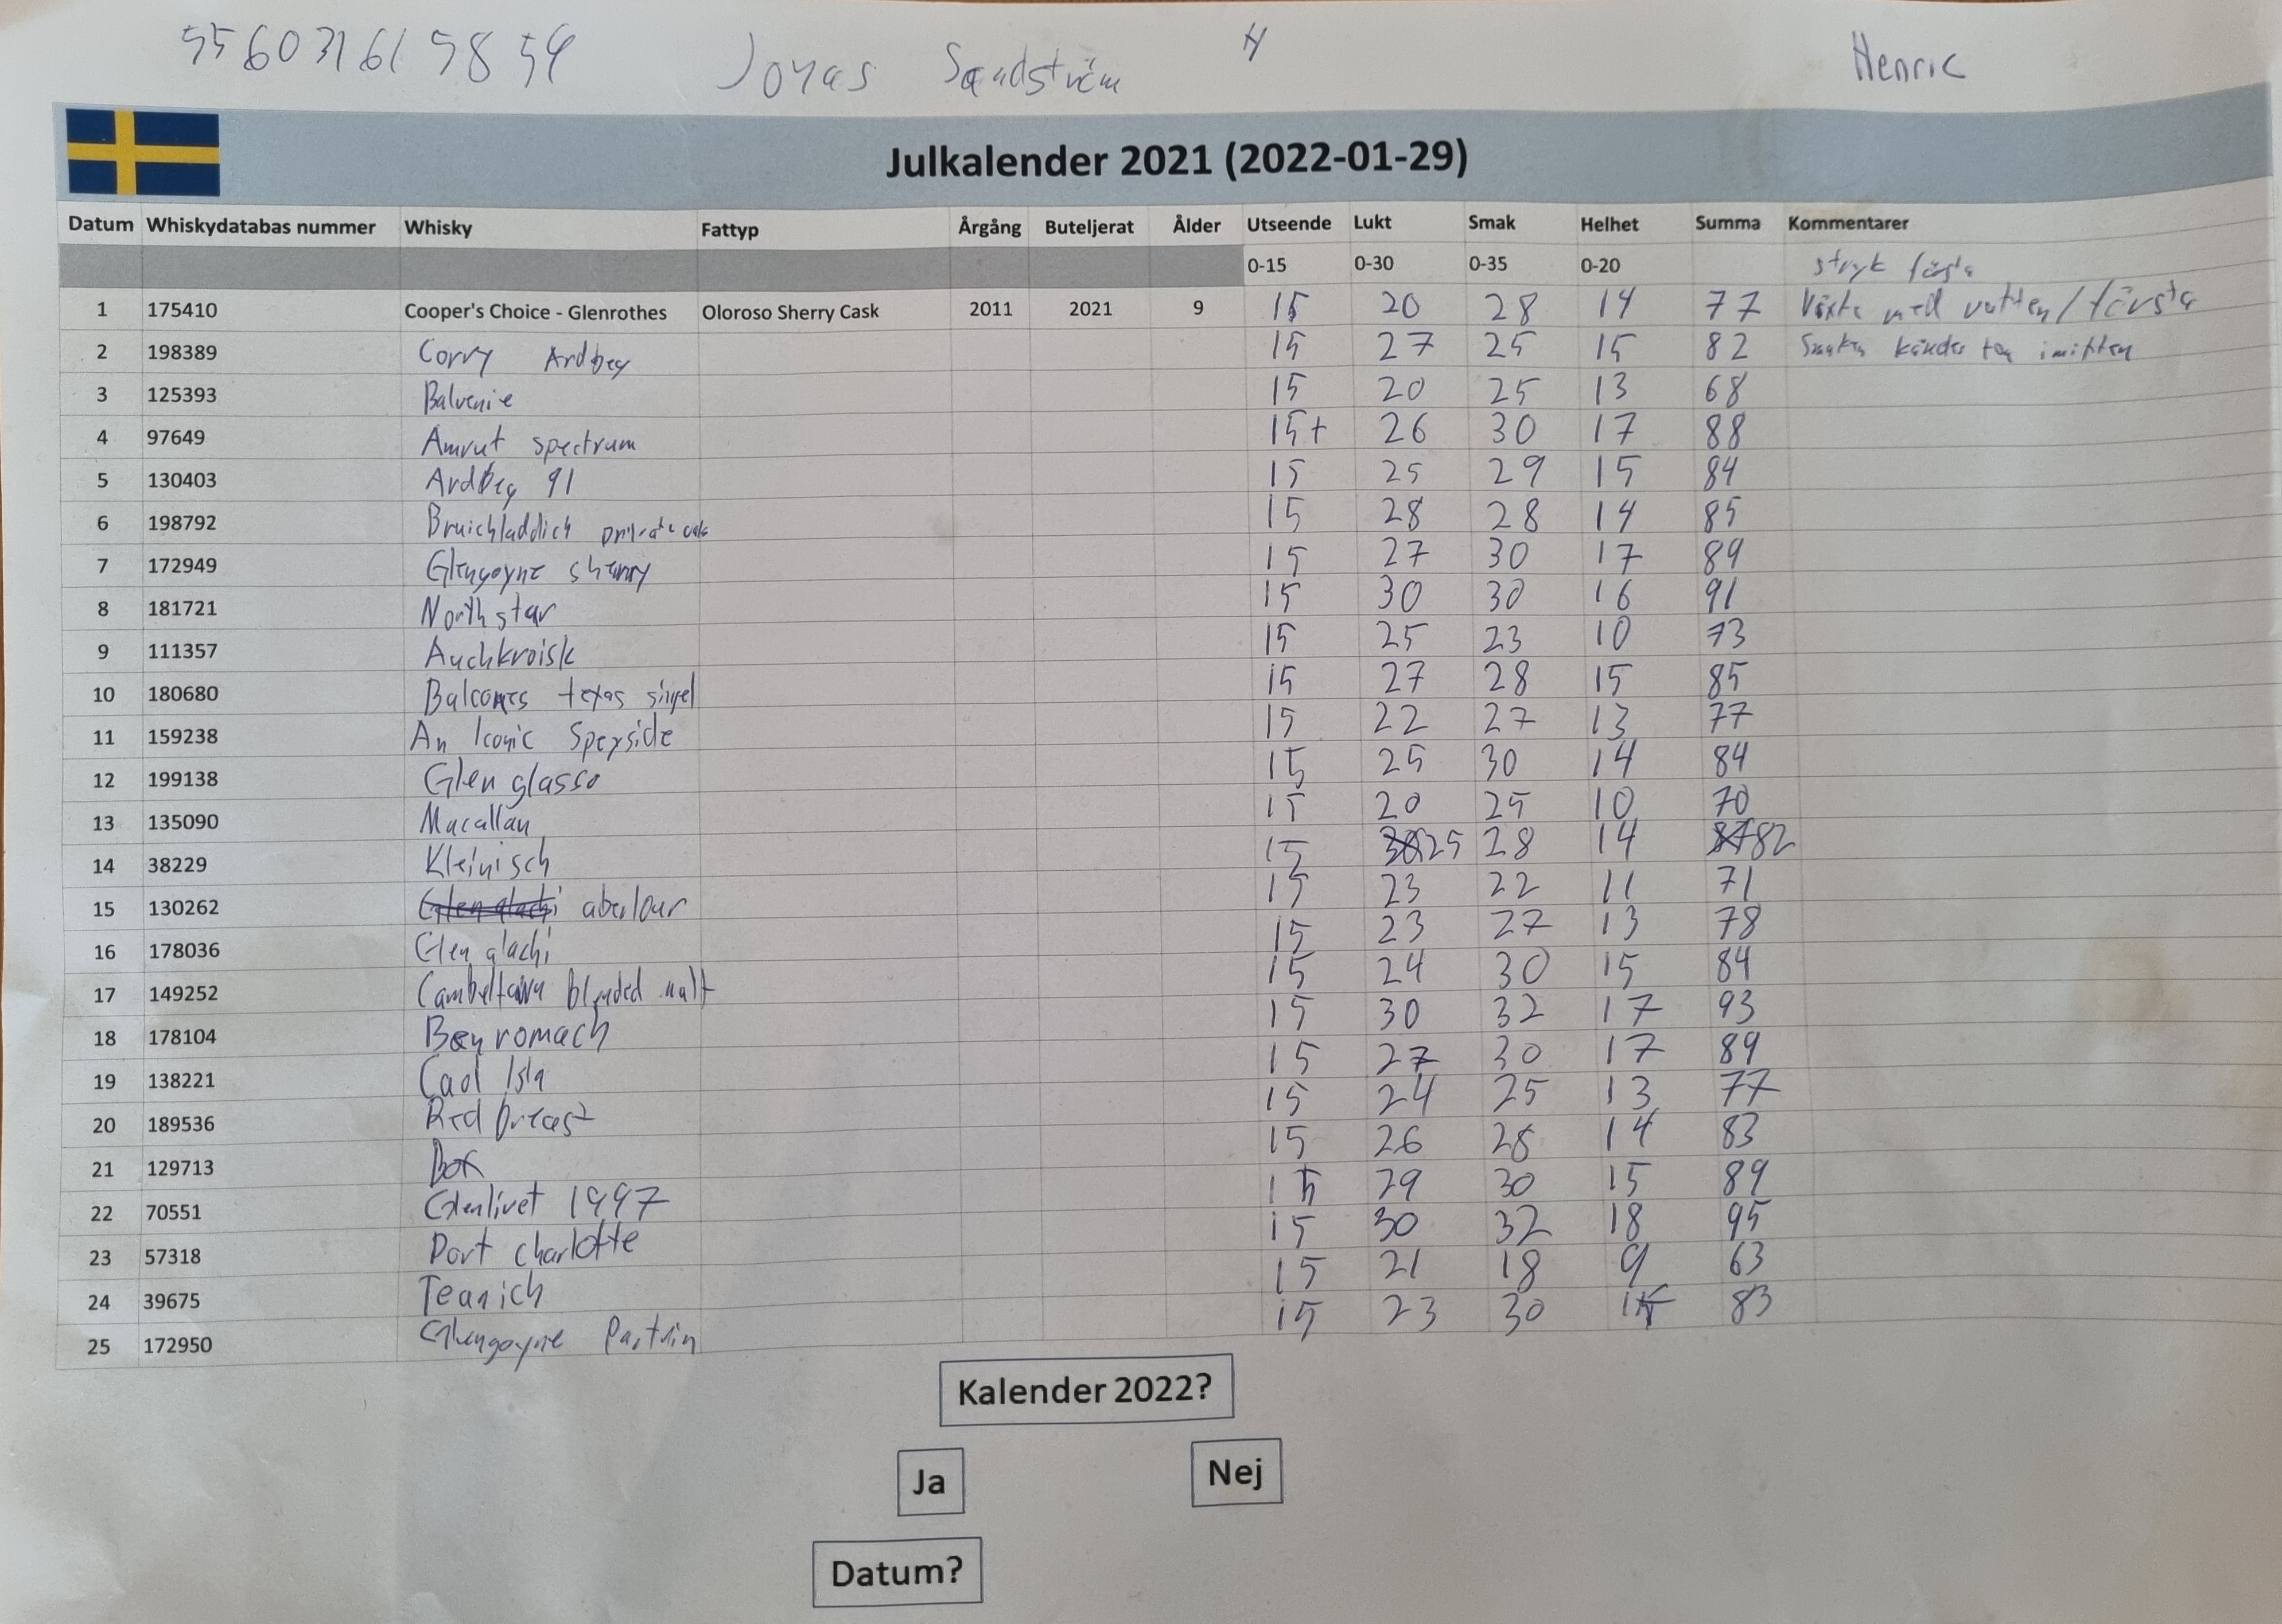 55603161 5854 Jonas Sandström H Henric
Julkalender 2021 (2022-01-29)
Datum Whiskydatabas nummer Whisky Fattyp Årgång Buteljerat Ålder Utseende Lukt Smak Helhet Summa Kommentarer
0-15 0-30 0-35 0-20 stryk
1 175410 Cooper's Choice - Glenrothes Oloroso Sherry Cask 2011 2021 9 15 20 28 14 77 Växte med vatten / första
2 198389 Corry Ardbeg 15 27 25 15 82 Smaken imitten
3 125393 Balvenie 15 20 25 13 68
4 97649 Amrut spectrum 15+ 26 30 17 88
5 130403 Ardbeg 91 15 25 29 15 84
6 198792 Bruichladdich private cask 15 28 28 14 85
7 172949 Glengoyne sherry 15 27 30 17 89
8 181721 North star 15 30 30 16 91
9 111357 Auchkroisk 15 25 23 10 73
10 180680 Balcones texas singel 15 27 28 15 85
11 159238 An Iconic Speyside 15 22 27 13 77
12 199138 Glen glasso 15 25 30 14 84
13 135090 Macallan 15 20 25 10 70
14 38229 Kleinisch 15 30 25 28 14 87 82
15 130262 Glen alachi aberlour 15 23 22 11 71
16 178036 Glen alachi 15 23 27 13 78
17 149252 Cambeltown blended malt 15 24 30 15 84
18 178104 Benromach 15 30 32 17 93
19 138221 Caol Isla 15 27 30 17 89
20 189536 Red breast 15 24 25 13 77
21 129713 Box 15 26 28 14 83
22 70551 Glenlivet 1997 15 29 30 15 89
23 57318 Port charlotte 15 30 32 18 95
24 39675 Teanich 15 21 18 9 63
25 172950 Glengoyne 15 23 30 15 83
Kalender 2022?
Ja Nej
Datum?